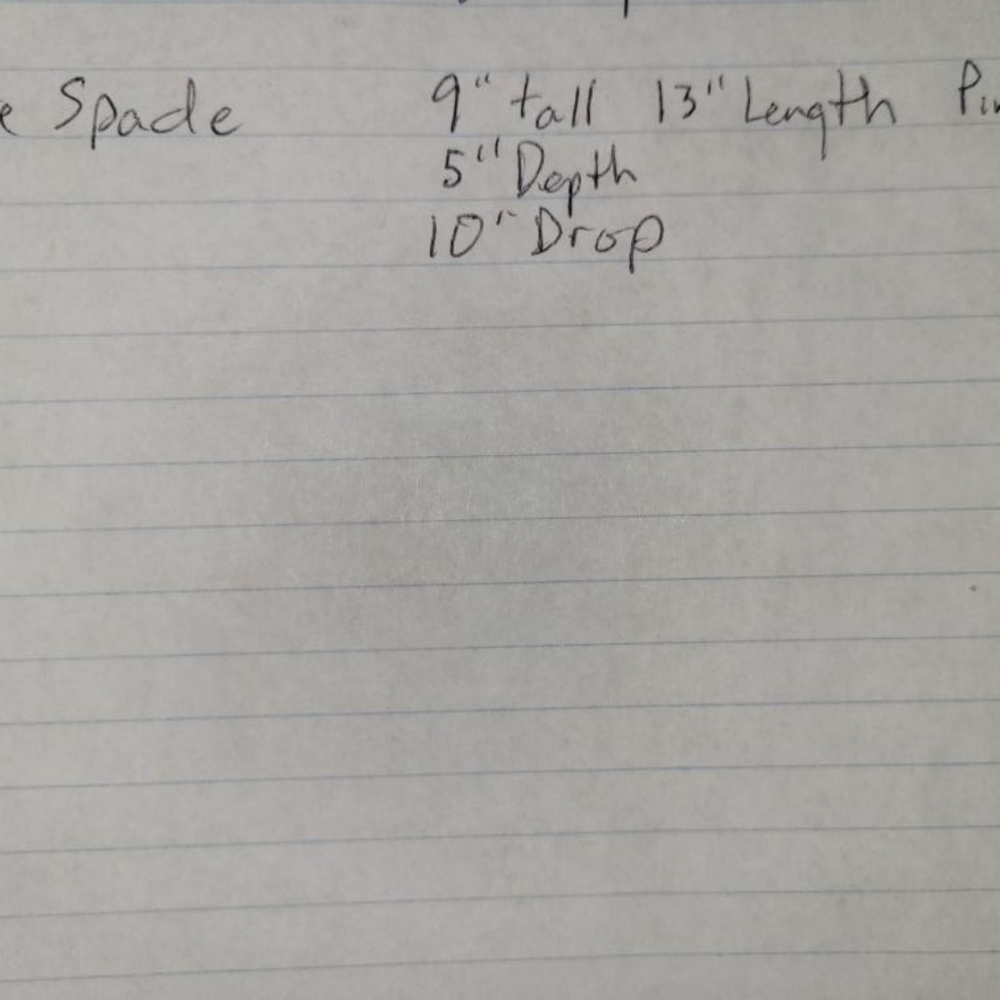 Spade 9" tall 13" Length
5" Depth
10" Drop